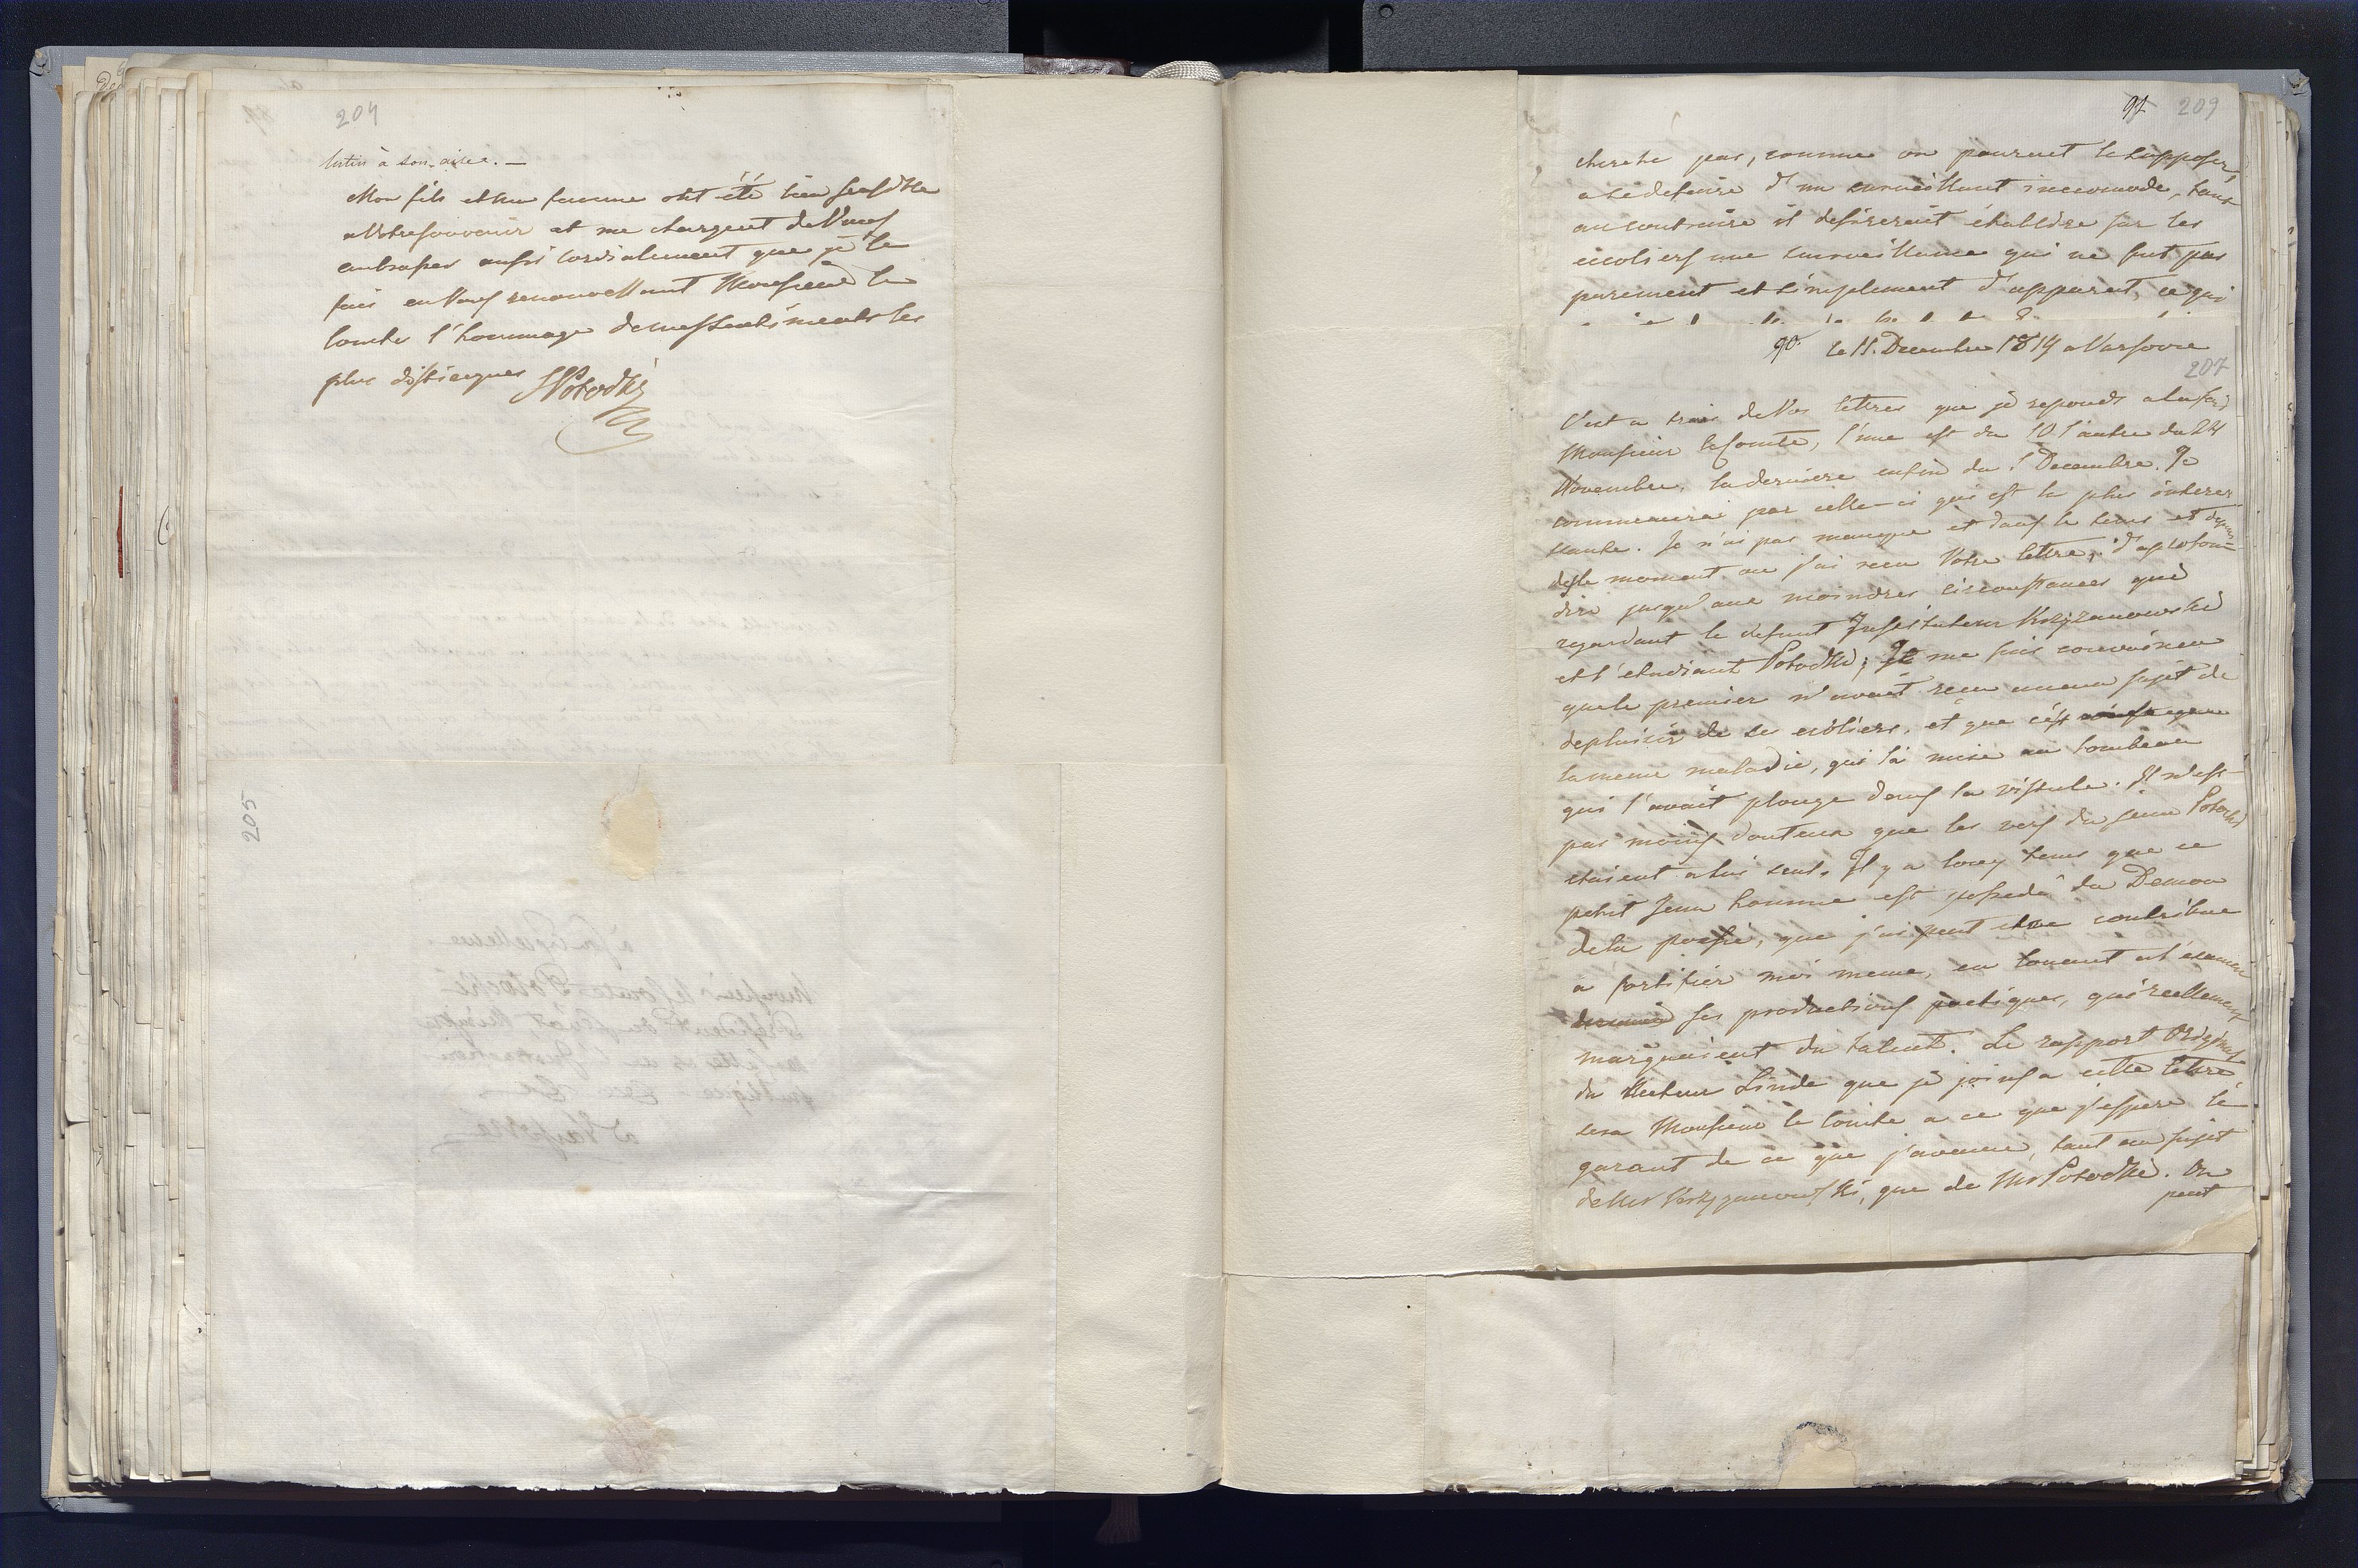 204
lutin à son aise. —
Mon fils et ma femme ont été bien sensible
a Votre souvenir et me chargent de Vous
embrasser aussi cordialement que je le
fais en Vous renouvellant Monsieur le
Comte l'hommage de mes sentiments les
plus distingues SPotocki
205
à Son Excellence
Monsieur le Comte Potocki
President du Senat Ministre
a Varsovie
91 209
cherche pas, comme on pourrait le supposer
a se defaire d'un surveillant incomode, tout
au contraire il desirerait établire sur les
ecoliers une surveillance qui ne fut pas
purement et simplement d'apparat, ce qui
90. le 11. Decembre 1819 a Varsovie
207
C'est a trois de Vos lettres que je reponds a la fois
Monsieur le Comte, l'une est du 10 l'autre du 24
Novembre, la derniere enfin du 1 Decembre. Je
commencerai par celle-ci qui est la plus interes-
sante. Je n'ai pas manque et dans le tems et depuis
le moment ou j'ai recu Votre lettre, d'aprofon-
dire jusqu'aux moindres circonstances que
regardant le defunt Instituteur Krzyzanowski
et l'etudiant Potocki; Je me suis convaincu
que le premier n'avait recu aucun sujet de
deplaisir de ses ecoliers, et que c'est
la meme maladie, qui l'a mise au tombeau
qui l'avait plonge dans la vistule. Il n'est
pas moins douteux que les vers du jeune Potocki
etaient a lui seul. Il y a long tems que ce
petit jeune homme est possedé du Demon
de la poesie, que j'ai peut etre contribue
a fortifier moi meme, en louant a l'examen
ses productions poetiques, qui reellement
marquaient du talent. Le rapport Original
du Recteur Linde que je joins a cette lettre
sera Monsieur le Comte a ce que j'espere le
garant de ce que j'avance, tant au sujet
de Mr Krzyzanowski, que de Mr Potocki. On
peut